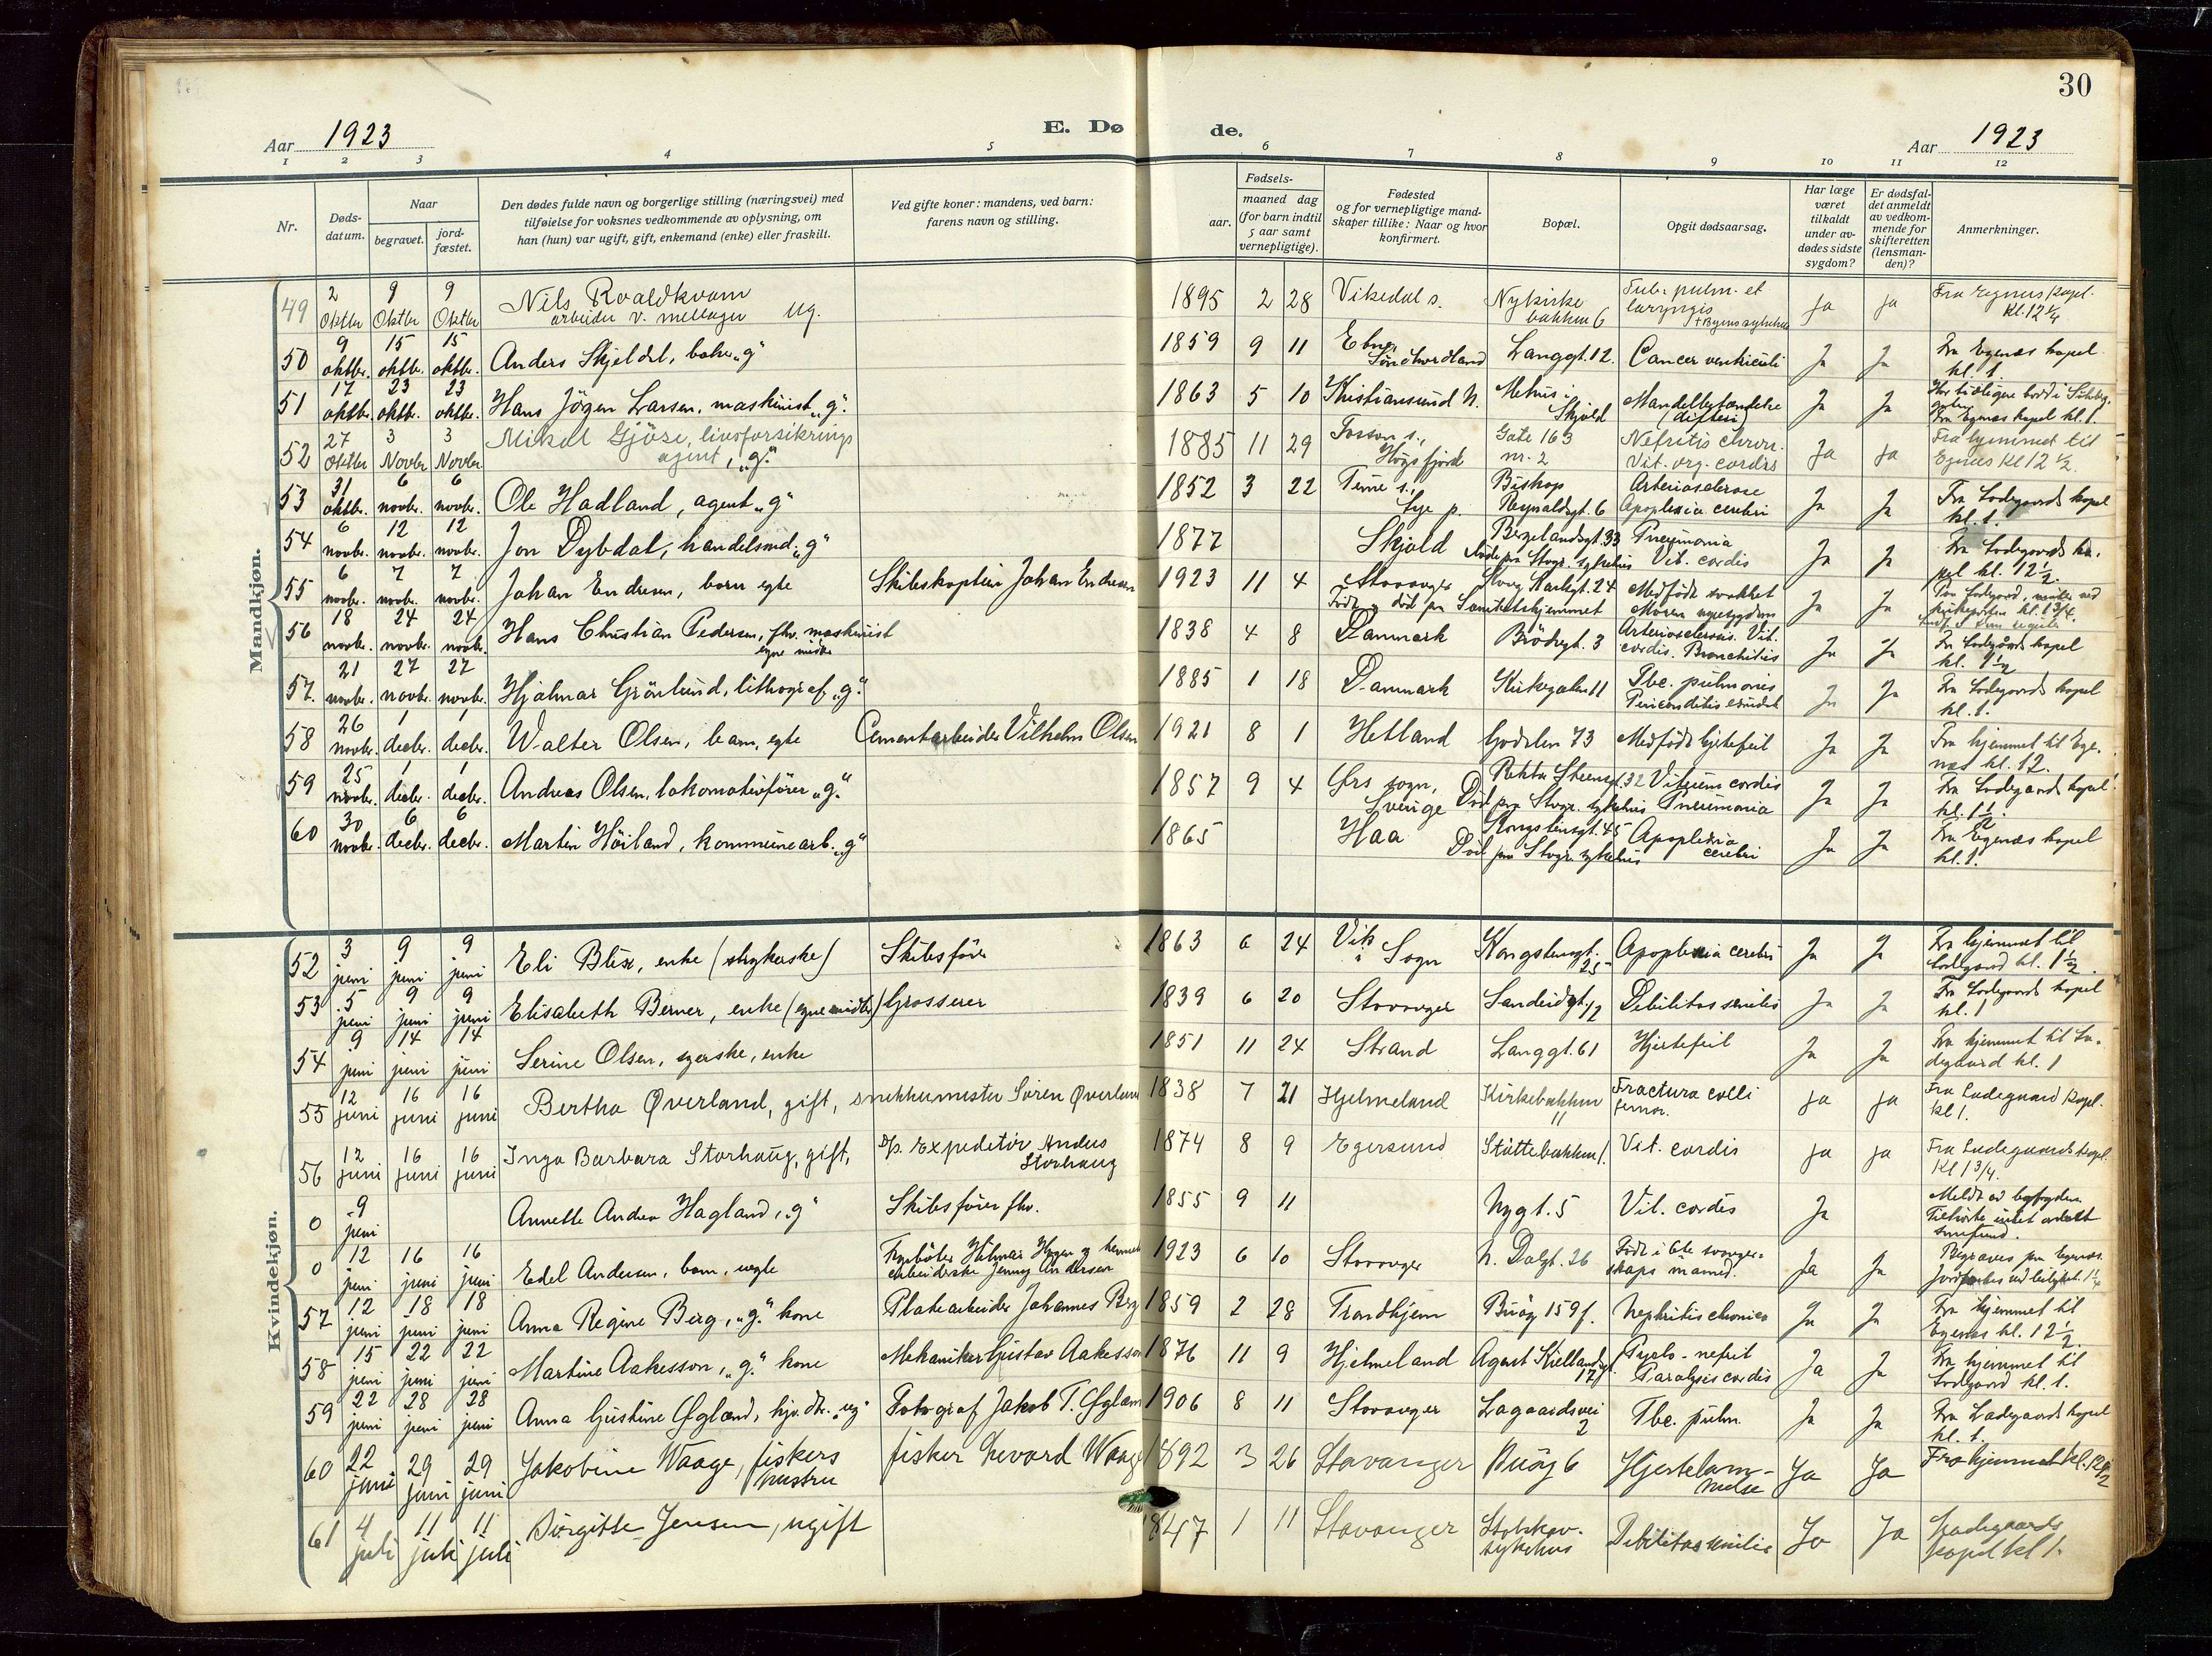 30
Aar 1923
E. Dø
de.
Aar 1923
1 2 3 4 5 6 7 8 9 10 11 12
Nr.
Døds-
datum.
Naar
begravet.
jord-
fæstet.
Den dødes fulde navn og borgerlige stilling (næringsvei) med
tilføielse for voksnes vedkommende av oplysning, om
han (hun) var ugift, gift, enkemand (enke) eller fraskilt.
Ved gifte koner: mandens, ved barn:
farens navn og stilling.
Fødsels-
aar.
maaned dag
(for barn indtil
5 aar samt
vernepligtige).
Fødested
og for vernepligtige mand-
skaper tillike: Naar og hvor
konfirmert.
Bopæl.
Opgit dødsaarsag.
Har læge
været
tilkaldt
under av-
dødes sidste
sygdom?
Er dødsfal-
det anmeldt
av vedkom-
mende for
skifteretten
(lensman-
den)?
Anmerkninger.
Mandkjøn.
49 2 Oktbr 9 Oktbr 9 Oktbr Nils Roaldkvam
arbeider v. ug. 1895 2 28 Vikedal s. Nykirke
bakken 6 Tub. pulm. et
laryngis ja ja Fra Egenes kapel.
kl. 12 1/4
50 9 oktbr. 15 oktbr. 15 oktbr. Anders Skjeldal, „g“ 1859 9 11 Etne,
Søndhordland Langgt. 12. Cancer ventriculi Ja Ja Fra Egenæs kapel
kl. 1.
51 17 oktbr. 23 oktbr. 23 oktbr. Hans Jörgen Larsen, maskinist „g“. 1863 5 10 Kristiansund N. Skjold
(difteri) Ja Ja
Fra Egenæs kapel kl. 1.
52 27 Oktbr 3 Novbr 3 Novbr. Mikal Gjöse, livsforsikrings
agent, „g.“ 1885 11 29 Fossan s.,
Høgsfjord Gate 163
nr. 2 Nefritis chron.
Vit. org. cordis Ja ja Fra hjemmet til
Egenes kl 12 1/2.
53 31 oktbr. 6 novbr. 6 novbr. Ole Hadland, agent „g“ 1852 3 22 Time s.,
Lye p. Bishop
Reynaldsgt. 6 Arteriosclerose
Apoplexia cerebri Ja Ja Fra Lodegaards kapel
kl. 1.
54 6 novbr. 12 novbr. 12 novbr. Jon Dybdal, handelsmd. „g“ 1877 Skjold Bergelandsgt. 33
Døde paa Stvgr. sykehus Pneumonia
Vit. cordis Ja Ja Fra Lodegaards ka-
pel kl. 12 1/2.
55 6 novbr. 7 novbr. 7 novbr. Johan Endresen, barn egte Skibskaptein Johan Endresen 1923 11 4 Stavanger
Født og død paa Sanitetshjemmet Karlsgt. 24 Medfødt svakhet
Moren nyresygdom Ja Ja
56 18 novbr. 24 novbr. 24 novbr. Hans Christian Pedersen, fhv. maskinist
egne midler 1838 4 8 Danmark Brödregt. 3 Arteriosclerosis. Vit.
cordis. Bronchitis Ja Ja Fra Lodegårds kapel
kl. 1 1/2
57. 21 novbr. 27 novbr. 27 novbr. Hjalmar Grönlund, lithograf, „g.“ 1885 1 18 Danmark Kirkegaten 11 Tbc. pulmonis
Ja Ja Fra Lodegaards kapel
kl. 1.
58 26 novbr. 1 decbr. 1 decbr. Walter Olsen, barn, egte Cementarbeider Vilhelm Olsen 1921 8 1 Hetland Godalen 73 Medfødt hjertefeil Ja Ja Fra hjemmet til Ege-
næs kl. 12.
59 25 novbr. 1 decbr. 1 decbr. Andreas Olsen, lokomotivfører „g.“ 1857 9 4 Ørs sogn,
Sverige 32
Død paa Stvgr. sykehus Vitium cordis
Pneumonia Ja Ja Fra Lodegaards kapel
kl. 1 1/2.
60 30 novbr. 6 decbr. 6 decbr. Martin Höiland, kommunearb. „g“ 1865 Haa Kongstensgt. 45
Død paa Stvgr. sykehus Apoplexia
cerebri Ja Ja Fra Egenæs kapel
kl. 1.
Kvindekjøn.
52 3 juni 9 juni 9 juni Eli Blix, enke (strykerske) Skibsfører 1863 6 24 Vik
i Sogn Kongstensgt.
25 Apoplexia cerebri Ja Ja Fra hjemmet til
Lodegaard kl. 1 1/2.
53 5 juni 9 juni 9 juni Elisabeth Berner, enke (egne midler) Grosserer 1839 6 20 Stavanger Sandeidgt. 12 Debilitas senilis Ja Ja Fra Lodegaards kapel
kl. 1
54 9 juni 14 juni 14 juni Serine Olsen, syerske, enke 1851 11 24 Strand Langgt. 61 Hjertefeil Ja Ja Fra hjemmet til Lo-
degaard kl. 1
55 12 juni 16 juni 16 juni Bertha Øverland, gift, snekkermester Sören Øverland 1838 7 21 Hjelmeland Kirkebakken
11 Fractura colli
femor. ja ja Fra Ladegaard kapl.
kl 1.
56 12 juni 16 juni 16 juni Inga Barbara Storhaug, gift, D/s. Expeditör Anders
Storhaug 1874 8 9 Egersund Støttebakken 1. Vit. cordis ja ja Fra Ladegaards kapl.
kl 1 3/4.
0 9 juni Annette Andrea Hagland, „g“ Skibsfører fhv. 1855 9 11 Nygt. 5 Vit. cordis Ja Meldt av
Tilhørte intet ordnet
samfund.
0 12 juni 16 juni 16 juni Edel Andersen, barn, uegte Fyrbøter Hilmar
arbeiderske Jenny Andersen 1923 6 10 Stavanger N. Dalgt. 26 Født i 6te svanger-
skaps maaned. Ja Ja Begraves paa Egenæs.
57 12 juni 18 juni 18 juni Anna Regine Berg, „g.“ kone Platearbeider Johannes Berg 1859 2 28 Trondhjem Buöy 159 f. Nephritis chronica Ja Ja Fra hjemmet til
Egenæs kl. 12 1/2.
58 15 juni 22 juni 22 juni Martine Aakesson, „g.“ kone Mekaniker Gustav Aakesson 1876 11 9 Hjelmeland Agent Kiellandsgt.
17 Pyelo-nefrit
Paralysis cordis Ja Ja Fra hjemmet til
Lodegaard kl. 1.
59 22 juni 28 juni 28 juni Anna Gustine Øgland, hjv. dtr. „ug“ Fotograf Jakob T. Øgland 1906 8 11 Stavanger Lagaardsvei
2 Tbc. pulm. Ja Ja Fra Ladegaards kapel
kl. 1.
60 22 juni 29 juni 29 juni Jakobine Waage, fiskers
hustru fisker Sevard Waage 1892 3 26 Stavanger Buöy 6 Hjertelam-
melse Ja Ja Fra hjemmet kl. 12 1/2
61 4 juli 11 juli 11 juli Birgitte Jensen, ugift 1847 1 11 Stavanger
sykehus Debilitas senilis Ja Ja Ladegaards
kapel kl 1.